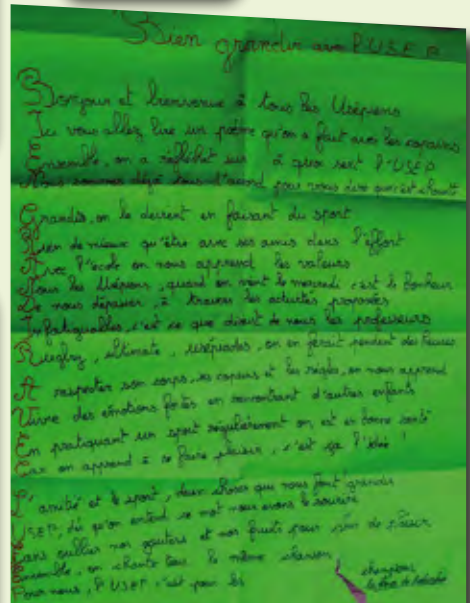 Bien grandir avec l'USEP
Bonjour et bienvenue à tous les Usépiens
Ici vous allez lire un poème qu'on a fait avec les copains
Ensemble, on a réfléchit sur à quoi sert l'USEP
Nous sommes déjà tous d'accord pour vous dire que c'est chouette
Grandir, on le devient en faisant du sport
Rien de mieux qu'être avec ses amis dans l'effort
Avec l'école on nous apprend les valeurs
Nous les Usépiens, quand on vient le mercredi c'est le bonheur
De nous dépasser, à travers les activités proposées
Infatiguables, c'est ce que disent de nous les professeurs
Rugby, ultimate, usépiades, on en ferait pendant des heures
A respecter son corps, ses copains et les règles, on nous apprend
Vivre des émotions fortes en rencontrant d'autres enfants
En pratiquant un sport régulièrement on est en bonne santé
Car on apprend à se faire plaisir, c'est ça l'idée !
L'amitié et le sport, deux choses qui nous font grandir
USEP, dès qu'on entend ce mot nous avons le sourire
Sans oublier nos goûters et nos fruits pour plus de plaisir
Ensemble, on chante tous la même chanson
Pour nous, l'USEP c'est pour les champions